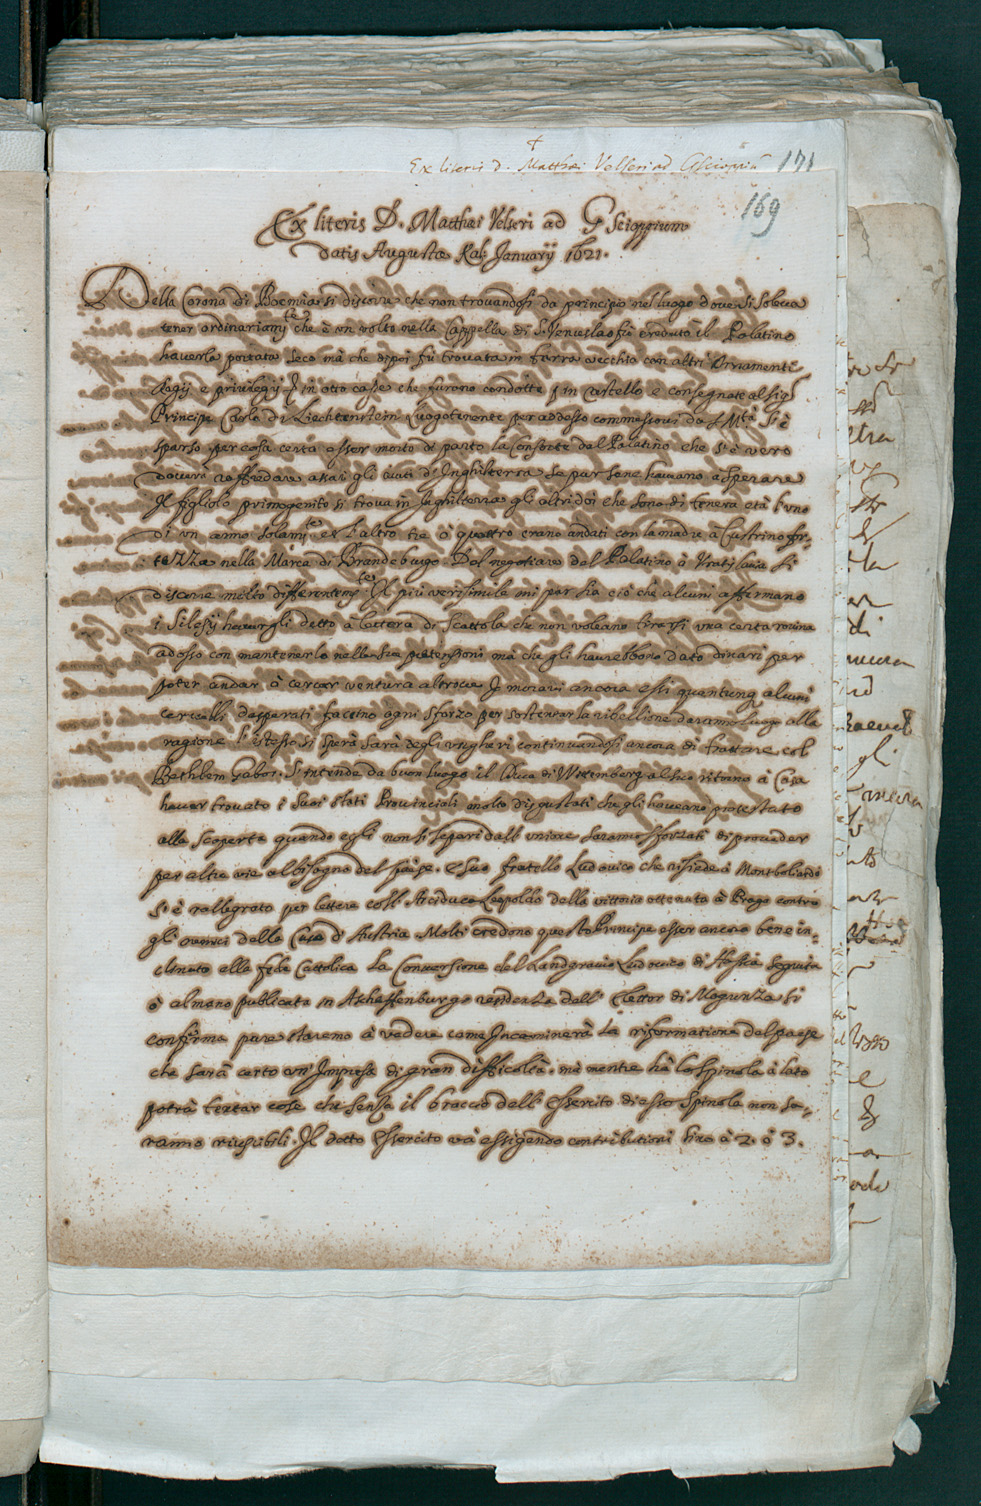 +
Ex literis D. Matthaei Velseri ad G Scioppiũ 171
169
Ex literis D. Matthæi Velseri ad G Scioppium
datis Augustæ Kal: Januarÿ 1621.
Della Corona di Boemia si discorre che non trovandosi da principio nel luogo dove si soleva
tener ordinariamte che è un volto nella Cappella di S. Venceslao fù creduto il Palatino
haverla portata seco mà che dipoi fù trovata in ferro vecchio con altri Ornamenti
Regij e privilegij in otto casse che furono condotte in castello e consegnate al sigr
Principe Carlo di Liechtenstein Luogotenente per adesso commessovi da S Mtà. S'è
sparso per cosa certa esser morta di parto la Consorte del Palatino che s'è vero
doverà raffredare assai gli aiuti d'Inghilterra se pur se ne havevano à sperare
Il figliolo primogenito si trova in Inghilterra gli altri doi che sono di tenera età l'uno
di un anno solamte et l'altro tre ò quattro erano andati con la madre à Custrino for-
tezza nella Marca di Brandeburgo. Del negotiare del Palatino à Vratislavia si
discorre molto differentemte. Il più verisimile mi par sia ciò che alcuni affermano
i Silesij havergli detto à lettera di Scattola che non voleano tirarsi una certa rovina
adosso con mantenerlo nelle sue pretensioni mà che gli haverebbono dato dinari per
poter andar à cercar ventura altrove. Je moravi ancora essi quantunq alcuni
cervelli desperati faccino ogni sforzo per sostentar la ribellione daranno luogo alla
ragione l'istesso si sperà sarà degli ungheri continuandosi ancora di trattare col
Bethlem Gabor. S'intende da buon luogo il Duca di Wirtemberg al suo ritorno à Casa
haver trovato i suoi stati Provinciali molto disgustati che gli haveano protestato
alla scoperta quando egli non si separi dall'unione saranno sforzati di proveder
per altre vie al bisogno del paese. E suo fratello Ludovico che risiede à Montboliardo
s'è rallegrato per lettere coll'Arciduca Leopoldo della vittoria ottenuta à Praga contro
gli nemici della Casa d'Austria. Molti credono questo Principe esser ancora bene in-
clinato alla fede Cattolica. La Conversione del Landgravio Ludovico di Hassia seguita
ò almeno publicata in Aschaffenburgo residenza dell'Elettor di Mogunza si
conferma pure staremo à vedere come Incaminerà la riformatione del paese
che sarà certo un'Impresa di gran difficoltà. mà mentre hà lo Spinola à lato
potrà tentar cose che senza il braccio dell'Essercito di esso Spinola non sa-
ranno riuscibili. Il detto Essercito và essigendo contributioni sino à 2. ò 3.